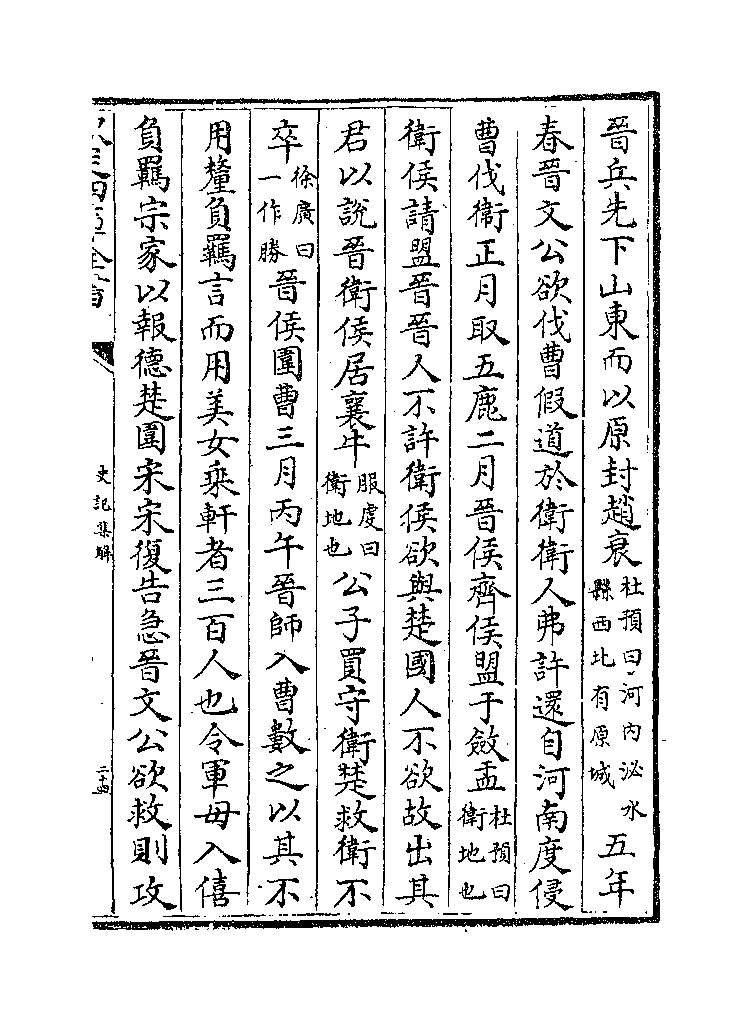 晉兵先下山東而以原封趙衰杜預曰河內泌水縣西北有原城五年
春晉文公欲伐曹假道於衛衛人弗許還自河南度侵
曹伐衛正月取五鹿二月晉侯齊侯盟于斂盂杜預曰衛地也
衛侯請盟晉晉人不許衛侯欲與楚國人不欲故出其
君以說晉衛侯居襄牛服虔曰衛地也公子買守衛楚救衛不
卒徐廣曰一作勝晉侯圍曹三月丙午晉師入曹數之以其不
用釐負羈言而用美女乘軒者三百人也令軍毋入僖
負羈宗家以報德楚圍宋宋復告急晉文公欲救則攻
史記集解
二十四